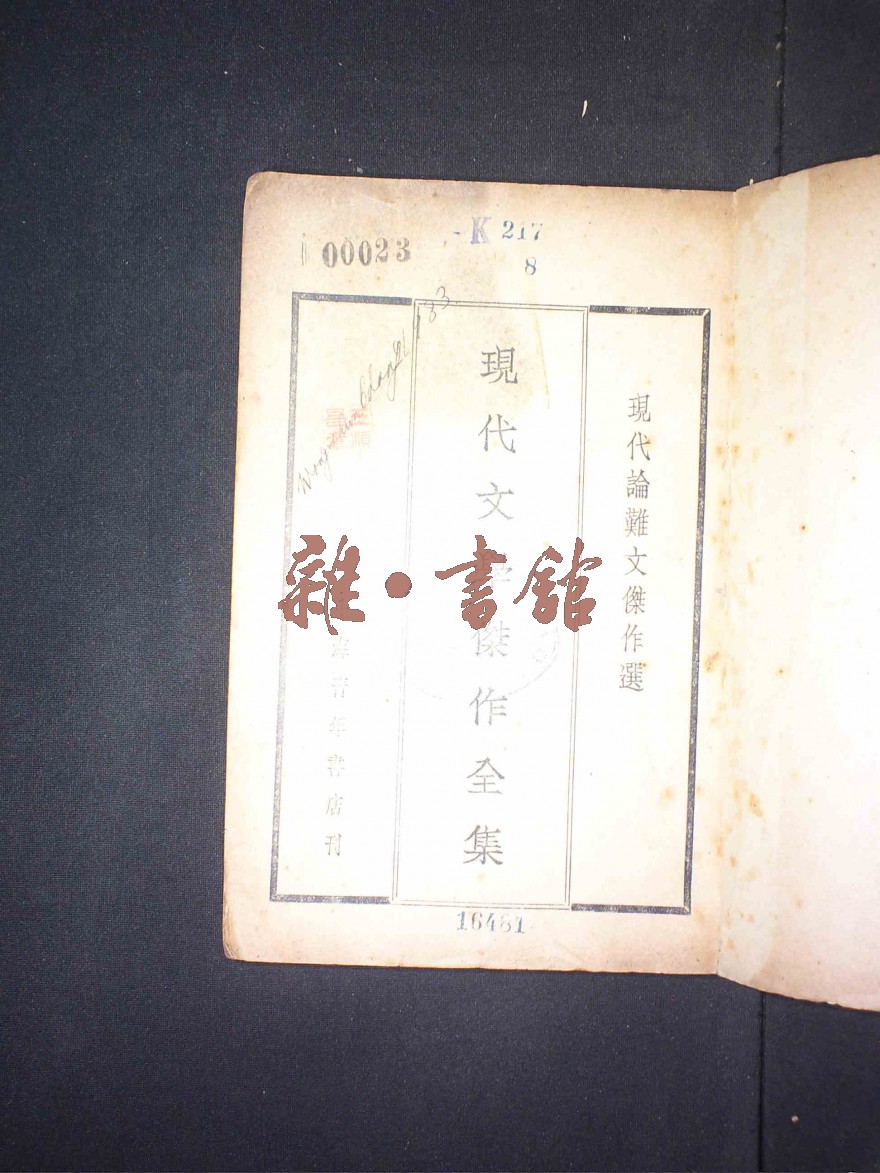 00023
K 217
8
現代論難文傑作選
現代文學傑作全集
青年書店刊
雜・書館
16481